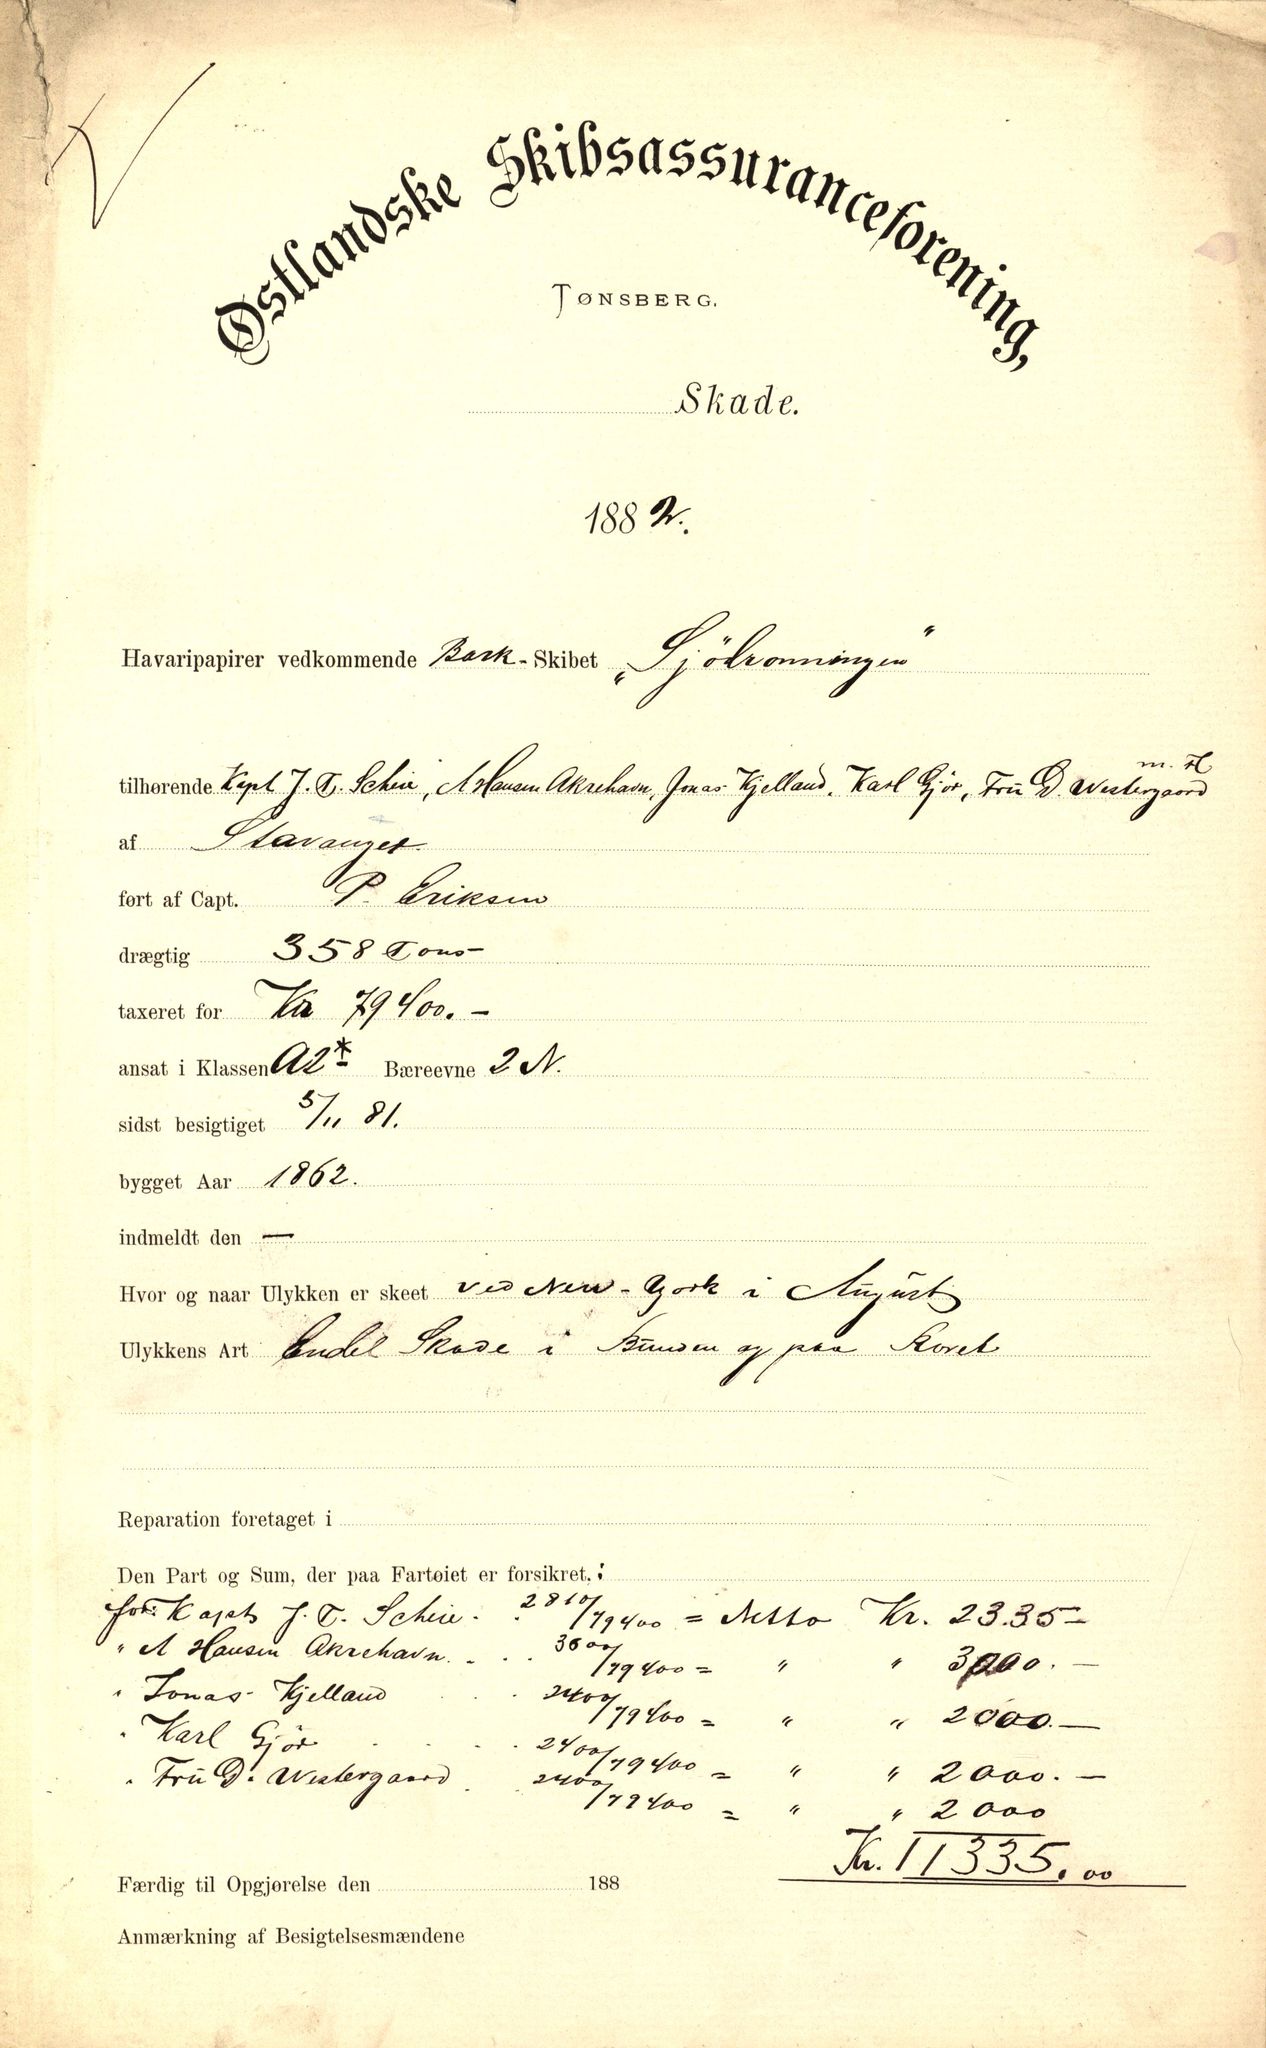 Østlandske Skibsassuranceforening,
TØNSBERG.
Skade.
1882.
Havaripapirer vedkommende Bark-Skibet „Sjödronningen"
m. fl
tilhørende Kapt J. T. Scheie, A Hansen Akrehavn, Jonas Kjelland, Karl Gjör, Frü D. Westergaard
af Stavanger.
ført af Capt. P. Eriksen
drægtig 358 Tons
taxeret for Kr 79400.-
ansat i Klassen A2* Bæreevne 2 N.
sidst besigtiget 5/11 81.
bygget Aar 1862.
indmeldt den —
Hvor og naar Ulykken er skeet ved New-York i Augüst
Ulykkens Art Endel Skade i Bunden og paa Roret
Reparation foretaget i
Den Part og Sum, der paa Fartøiet er forsikret,:
for: Kapt J. T. Scheie. 2810/79400 = Netto Kr. 2335-
" A Hansen Akrehavn. . . 3600/79400 = " " 3000.-
" Jonas Kjelland . . 2400/79400 = " " 2000.-
" Karl Gjör . . . 2400/79400 = " " 2000.-
" Frü D. Westergaard . 2400/79400 = " " 2000
Kr. 11335.00
Færdig til Opgjørelse den 188
Anmærkning af Besigtelsesmændene